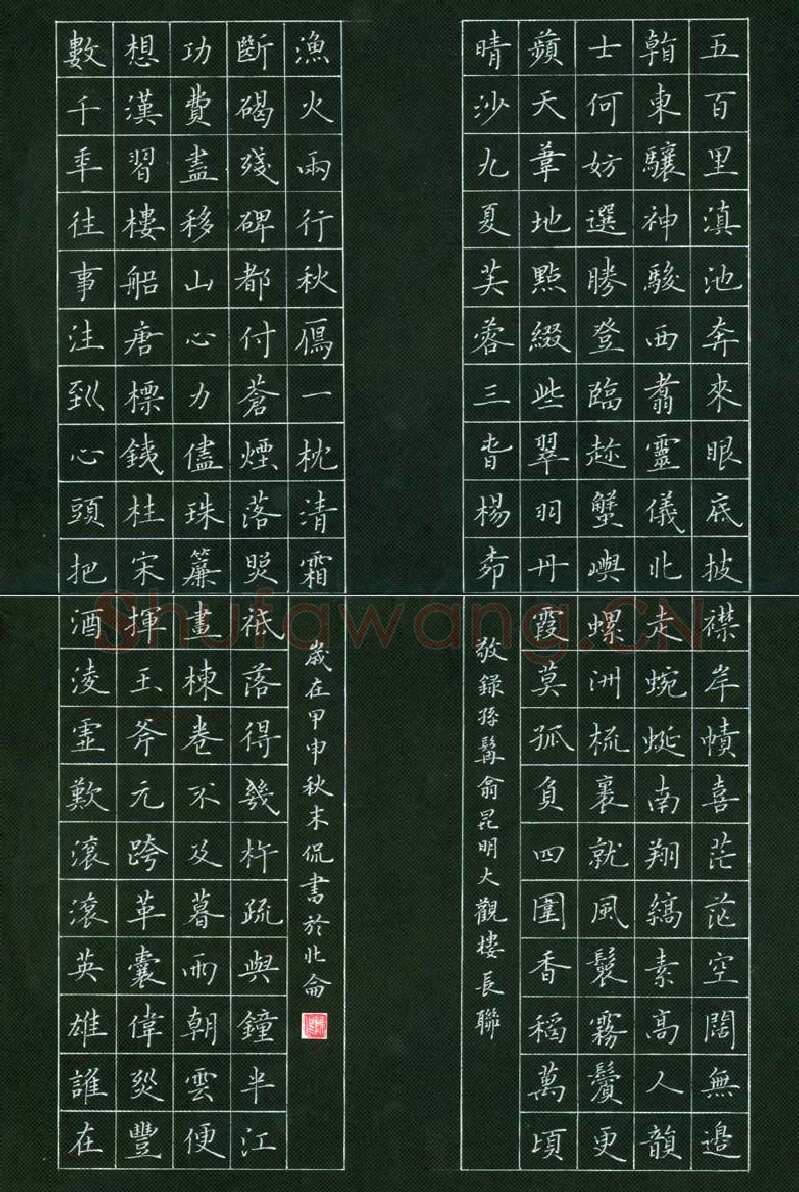 五百里滇池奔來眼底披襟岸幘喜茫茫空闊無邊
看東驤神駿西翥靈儀北走蜿蜒南翔縞素高人韻
士何妨選勝登臨趂蟹嶼螺洲梳裹就風鬟霧鬢更
蘋天葦地點綴些翠羽丹霞莫孤負四圍香稻萬頃
晴沙九夏芙蓉三旾楊桺
敬錄孫髯翁昆明大觀樓長聯
數千年往事注到心頭把酒淩虛歎滾滾英雄誰在
想漢習樓船唐標銕柱宋揮玉斧元跨革囊偉烈豐
功費盡移山心力儘珠簾畫棟卷不及暮雨朝雲便
斷碣殘碑都付蒼煙落照祗落得幾杵疏與鐘半江
漁火兩行秋鴈一枕清霜
歲在甲申秋末侃書於北侖
Shufawang.CN